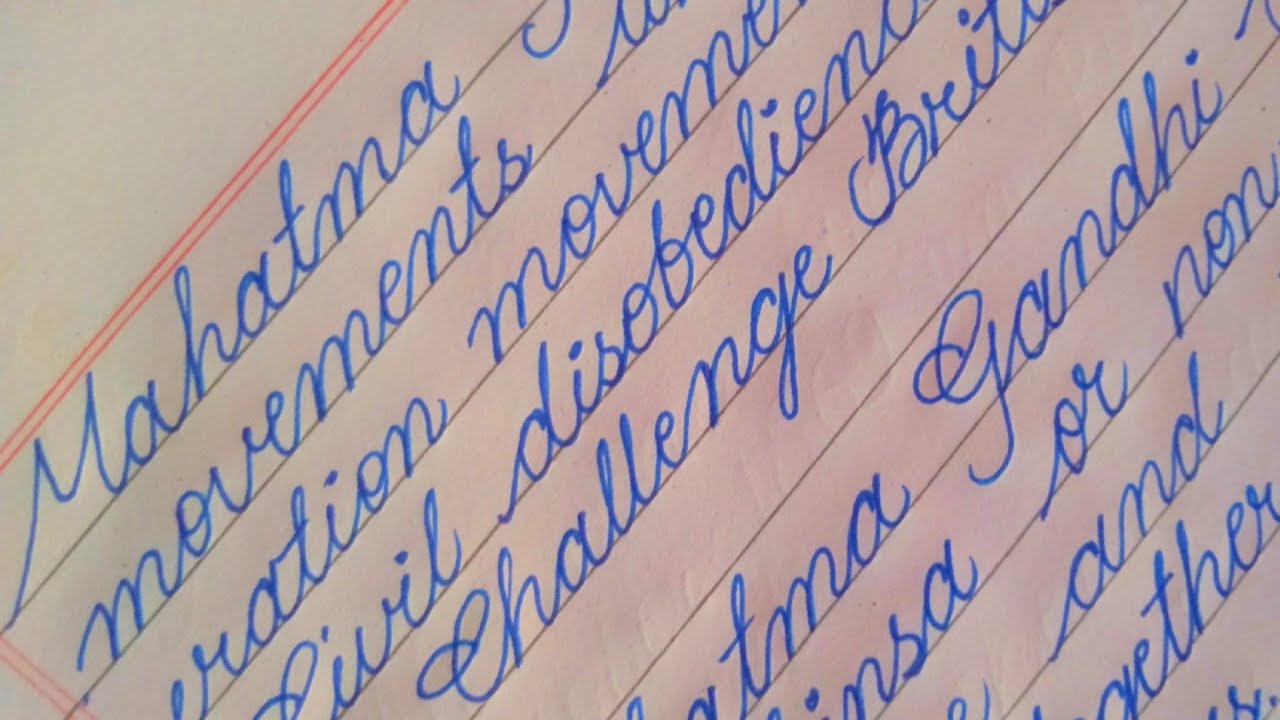 Mahatma
movements
eration movemen
Civil disobedien
Challenge Briti
atma Gandhi
insa or non
and
ogether